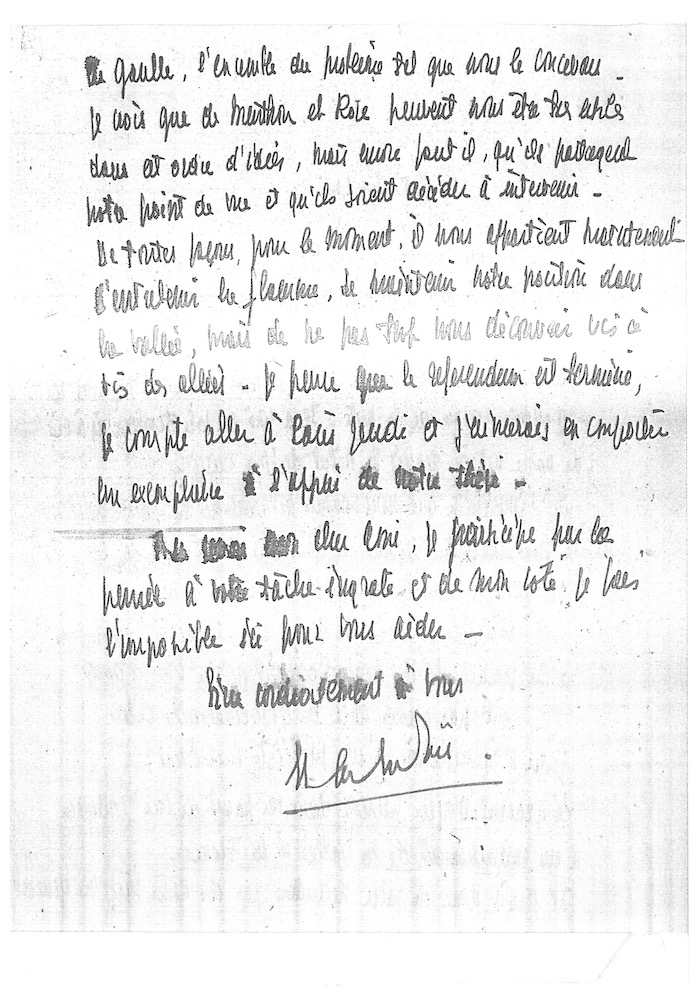 de Gaulle, l'ensemble du problème tel que nous le concevons -
Je crois que de Menthon et Roie peuvent nous être très utiles
dans cet ordre d'idées, mais encore faut il, qu'ils partagent
notre point de vue et qu'ils soient décidés à intervenir -
De toutes façons, pour le moment, il nous appartient maintenant
d'entretenir la flamme, de maintenir notre position dans
la vallée, mais de ne pas trop nous découvrir vis à
vis des alliés - Je pense que le referendum est terminé,
je compte aller à Paris Jeudi et j'aimerais en emporter
un exemplaire à l'appui de notre thèse -
cher ami, je participe par la
pensée à votre tâche ingrate et de mon coté je fais
l'impossible ici pour vous aider -
Bien cordialement à vous